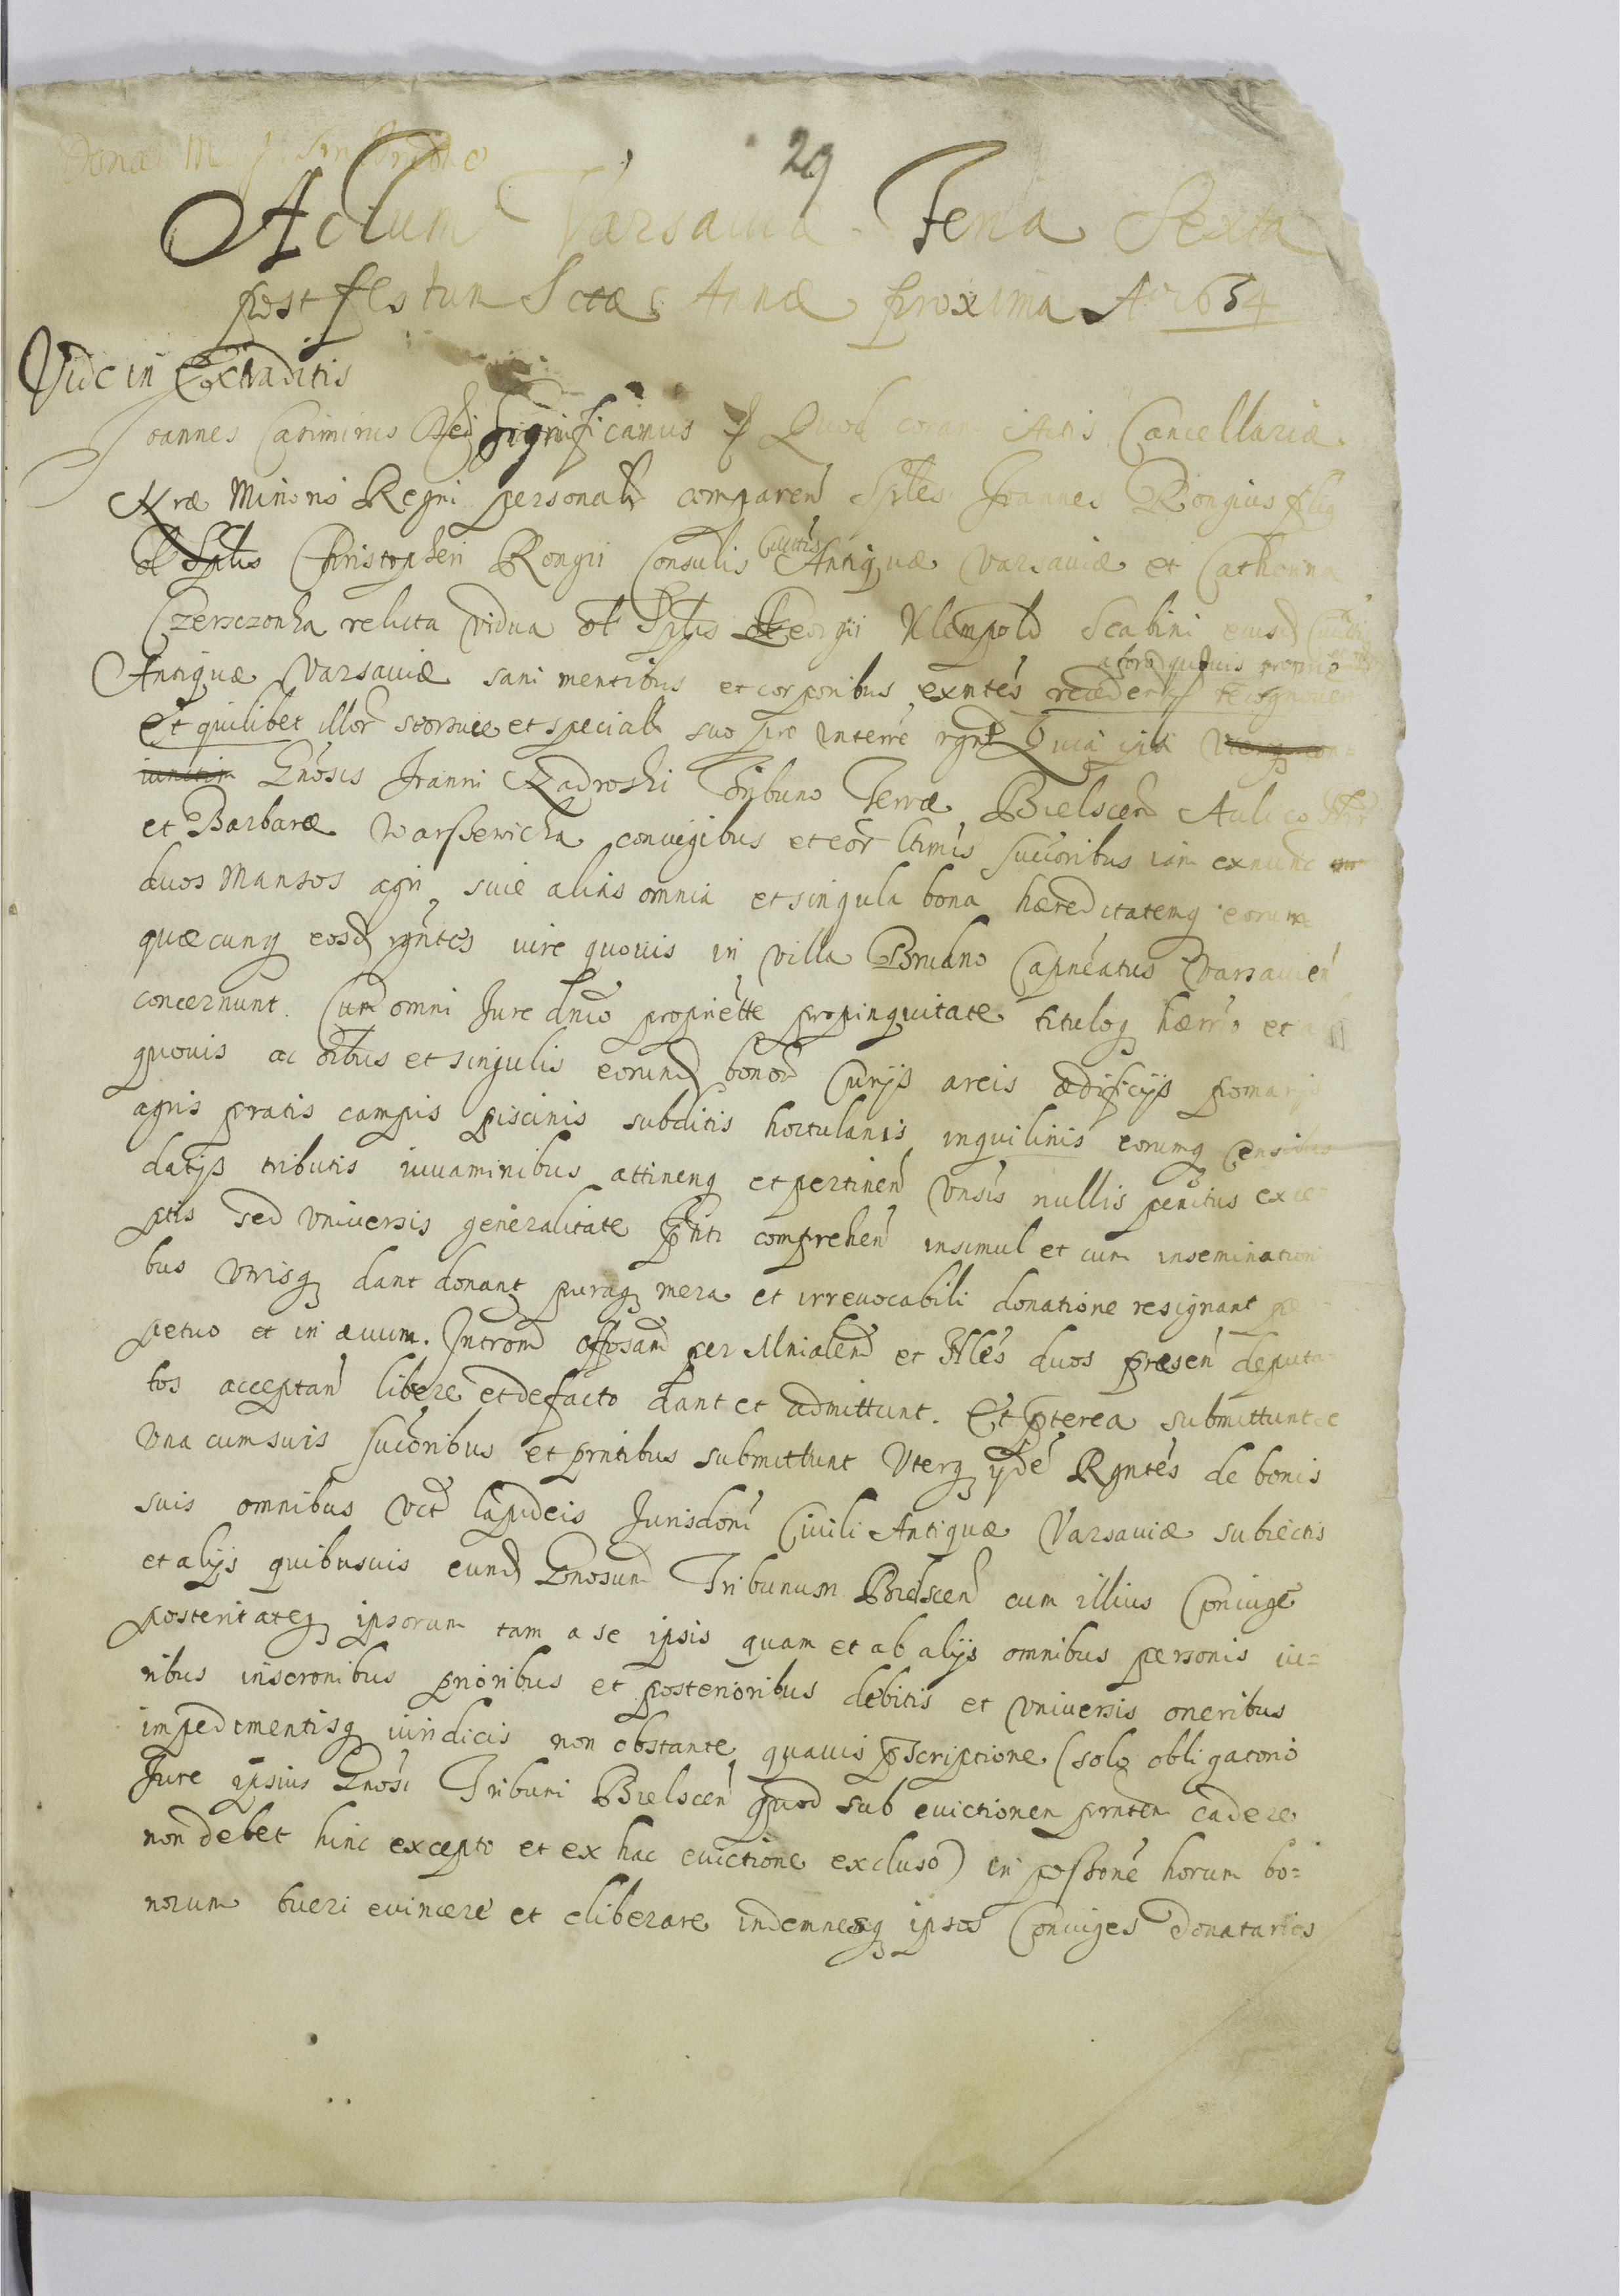 29
Actum Varsauiæ Feria Sexta
post festum Sctæ Annæ proxima Ao 1654
Vide in Extraditis
Joannes Casimirus Rex Significamus Quod coram Actis Cancellariæ
Nræ Minoris Regni personalr comparen Sptles Joannes Rongius filiq
ol Sptlis Christopheri Rongii Consulis Ciuittis Antiquæ Varsauiæ et Catherina
Czerszczonka relicta vidua ol Sptlis Georgii Klempold Scabini eiusd Ciuittis
Antiquæ Varsauiæ sani mentibus et corporibus exntes receden recognouer
a foro quouis proprio
Et quilibet illor seorsiue et specialr suo pro interre rgnt Quia ipsi
Gnosis Joanni Zadroski Tribuno Terræ Bielscen Aulico Nro
et Barbaræ Warszewicka coniugibus et eor ltimis succoribus iam exnunc
duos Mansos agri, siue alias omnia et singula bona hæreditatemq eorum
quæcunq eosd rgntes iure quouis in villa Brudno Capneatus Varsauien
concernunt. Cum omni Jure dnio propriette propinquitate tituloq hærrio et
quouis ac oibus et singulis eorund bonor Curijs areis ædificijs pomarijs
agris pratis campis piscinis subditis hortulanis inquilinis eorumq Censibus
datijs tributis iuuaminibus attinenq et pertinen vnsis nullis penitus exce-
ptis sed vniuersis generalitate pnti comprehen insimul et cum inseminationi
bus vtrisq dant donant puraq mera et irreuocabili donatione resignant pe-
petuo et in æuum. Introm offosam per Mnialem et Nles duos præsen deputa
tos acceptan libere et de facto dant et admittunt. Et pterea submittunt se
vna cum suis succoribus et pntibus submittunt Vterq yde Rgntes de bonis
suis omnibus vct lapideis Jurisdoni Ciuili Antiquæ Varsauiæ subiectis
et alijs quibusuis eund Gnosum Tribunum Bielscen cum illius Coniuge
posteritateq ipsorum tam a se ipsis quam et ab alijs omnibus personis iu=
ribus inscronibus prioribus et posterioribus debitis et vniuersis oneribus
impedimentisq iuridicis non obstante quauis pscriptione (solo obligatorio
Jure ipsius Gnosi Tribuni Bielscen quod sub euictionem pntem cadere
non debet hinc excepto et ex hac euictione excluso) in possone horum bo=
norum tueri euincere et eliberare indemnesq ipsos Coniuges Donatarios